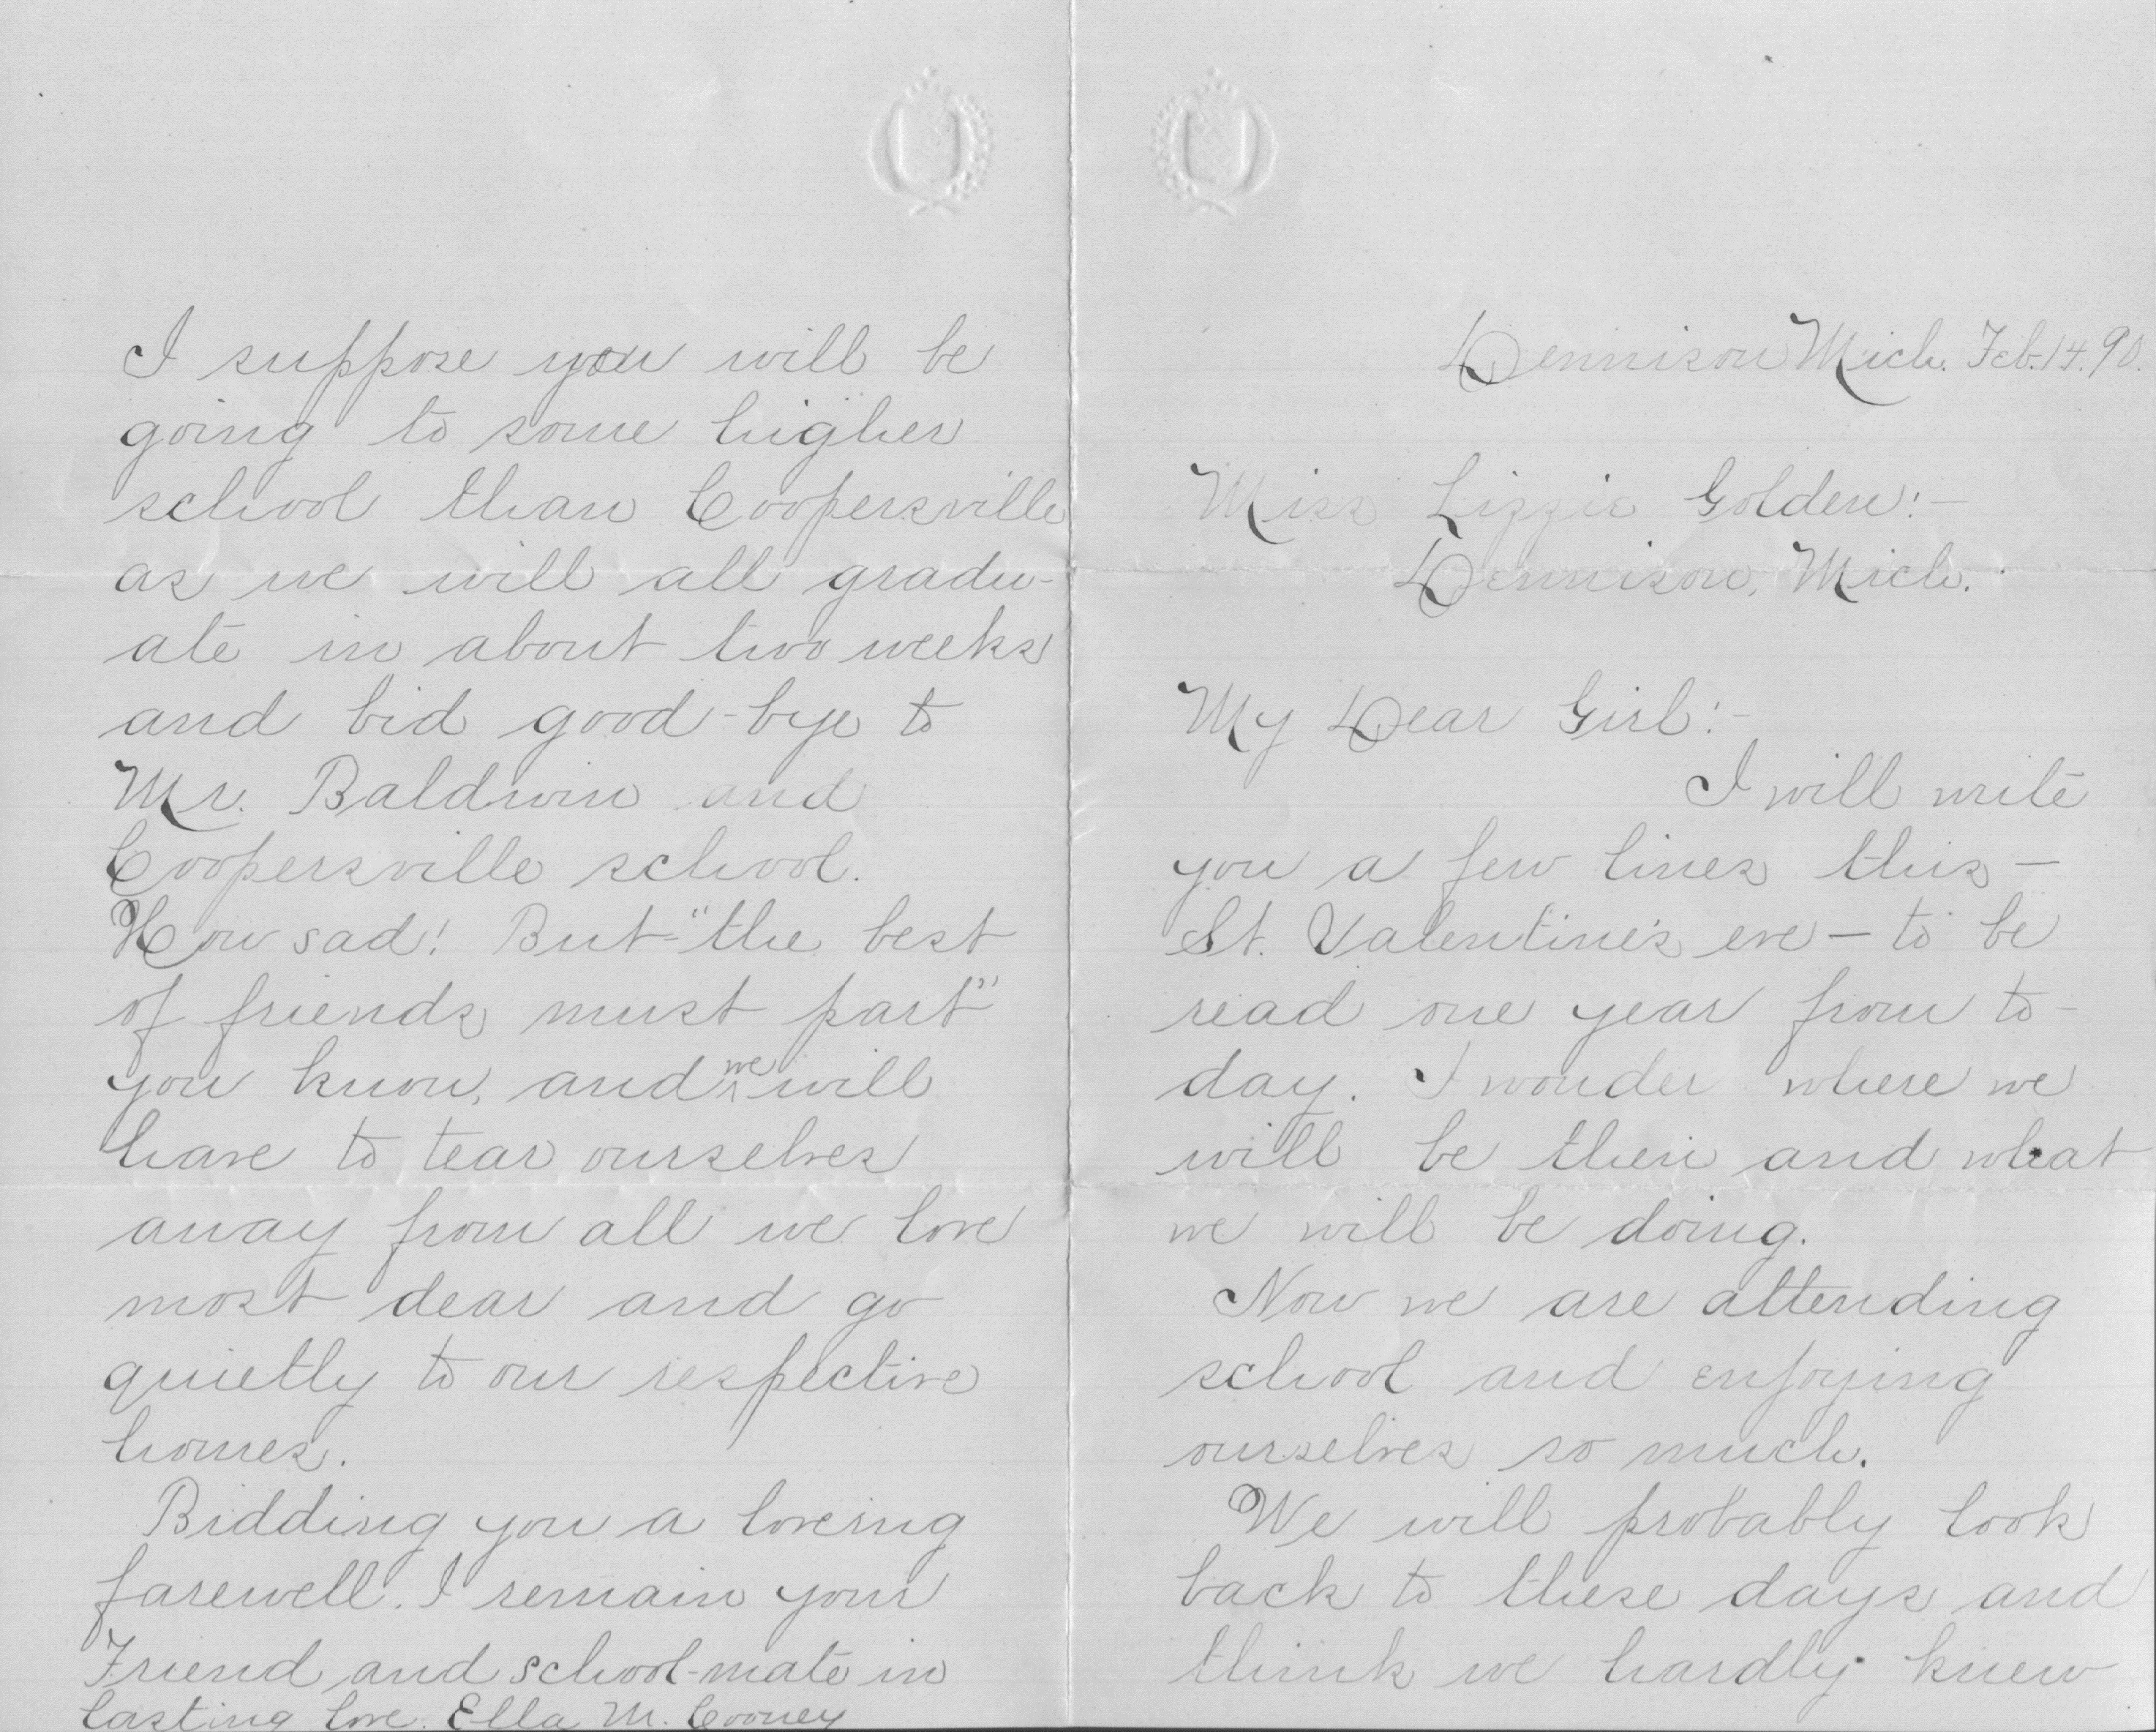 Dennison Mich. Feb. 14. 90.
Miss Lizzie Golden:-
Dennison, Mich.
My Dear Girl:-
I will write
you a few lines this -
St. Valentine's eve - to be
read one year from to-
day. I wonder where we
will be then and what
we will be doing.
Now we are attending
school and enjoying
ourselves so much.
We will probably look
back to these days and
think we hardly knew
I suppose you will be
going to some higher
school than Coopersville
as we will all gradu-
ate in about two weeks
and bid good-bye to
Mr. Baldwin and
Coopersville school.
How sad! But "the best
of friends must part"
you know, and we will
have to tear ourselves
away from all we love
most dear and go
quietly to our respective
homes.
Bidding you a loveing
farewell. I remain your
Friend and school-mate in
lasting love. Ella M. Cooney